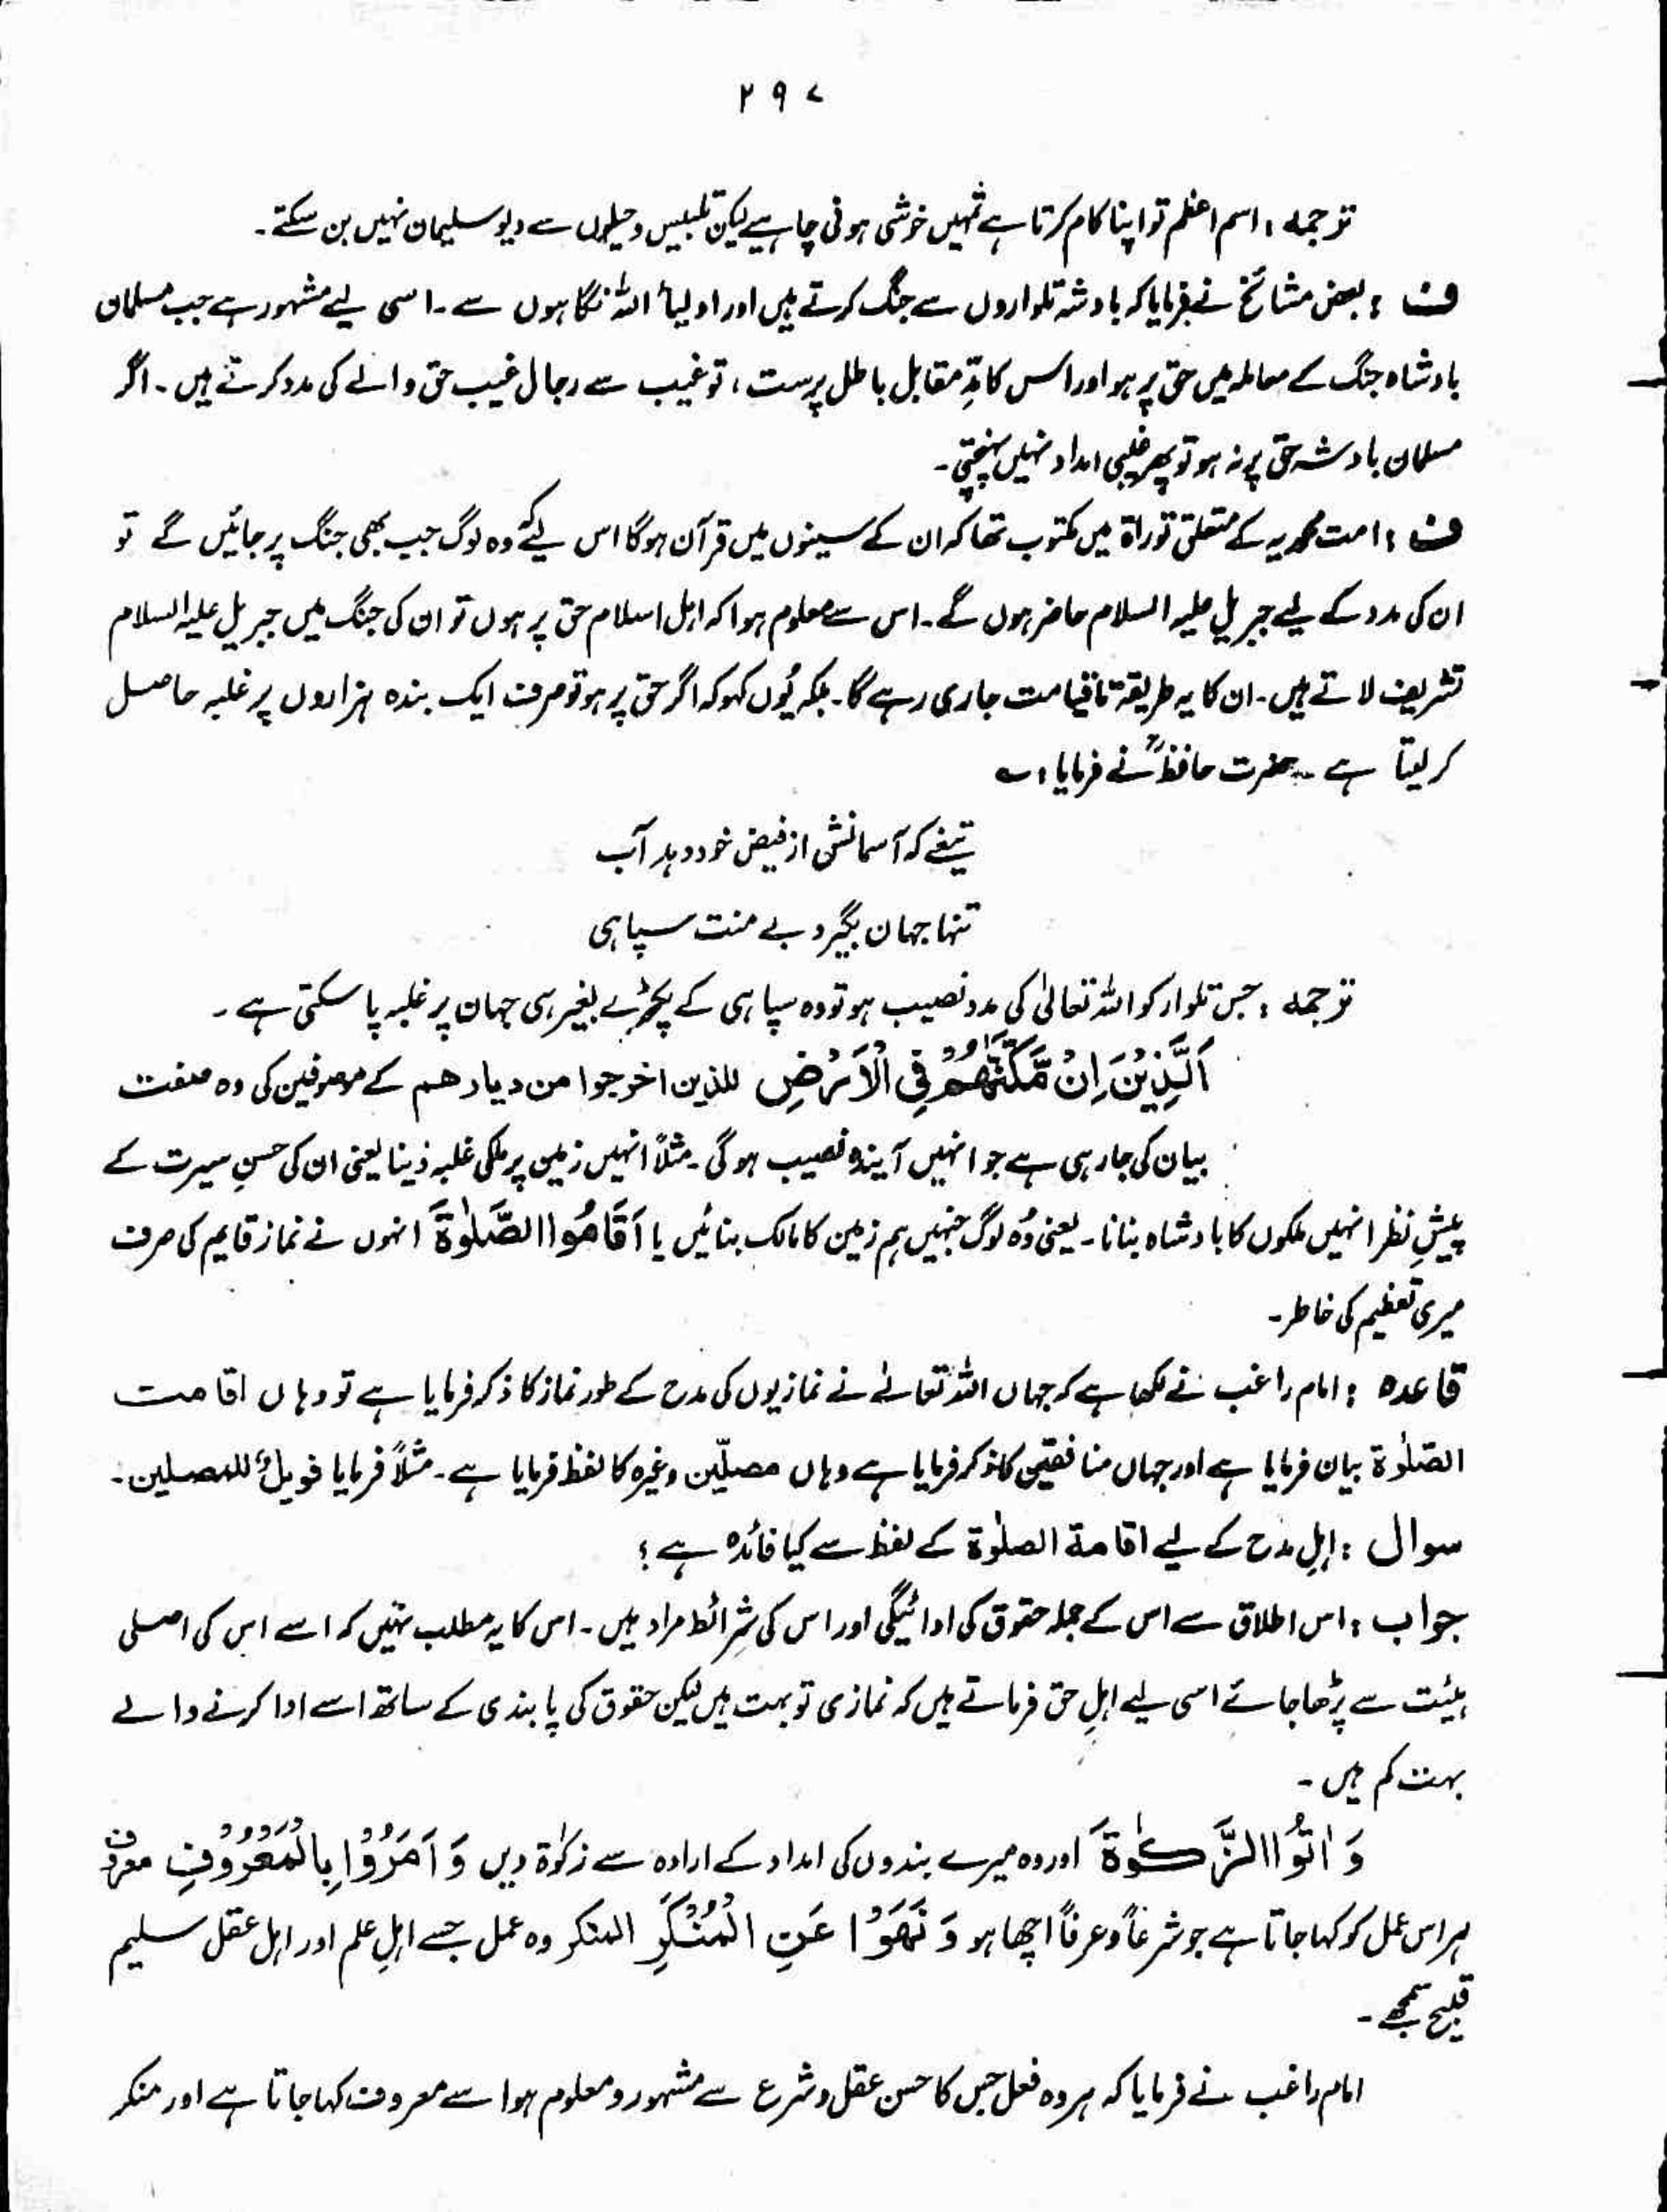 ۲۹۷
ترجمہ : اسم اعظم تو اپنا کام کرتا ہے تمہیں خوشی ہونی چاہیے لیکن تلبیس و حیلوں سے دیو سلیمان نہیں بن سکتے۔
ف : بعض مشائخ نے فرمایا کہ بادشہ تلواروں سے جنگ کرتے ہیں اور اولیأ اللہ نگاہوں سے۔ اسی لیے مشہور ہے جب مسلمان
بادشاہ جنگ کے معاملہ میں حق پر ہو اور اس کا مدِّ مقابل باطل پرست، تو غیب سے رجال غیب حق والے کی مدد کرتے ہیں۔ اگر
مسلمان بادشہ حق پر نہ ہو تو پھر غیبی امداد نہیں پہنچتی۔
ف : امت محمدیہ کے متعلق توراۃ میں مکتوب تھا کہ ان کے سینوں میں قرآن ہوگا اس لیے کہ وہ لوگ جب بھی جنگ پر جائیں گے تو
ان کی مدد کے لیے جبریل علیہ السلام حاضر ہوں گے۔ اس سے معلوم ہوا کہ اہل اسلام حق پر ہوں تو ان کی جنگ میں جبریل علیہ السلام
تشریف لاتے ہیں۔ ان کا یہ طریقہ تاقیامت جاری رہے گا۔ بلکہ یُوں کہو کہ اگر حق پر ہو تو صرف ایک بندہ ہزاروں پر غلبہ حاصل
کر لیتا ہے ۔ حضرت حافظؒ نے فرمایا : ؎
تیغے کہ آسمانش از فیض خود دہد آب
تنہا جہان بگیرد بے منت سپاہی
ترجمہ : جس تلوار کو اللہ تعالیٰ کی مدد نصیب ہو تو وہ سپاہی کے پکڑے بغیر ہی جہان پر غلبہ پا سکتی ہے ۔
اَلَّذِیْنَ اِنْ مَّکَّنّٰھُمْ فِی الْاَرْضِ للذین اخرجوا من دیارھم کے موصوفین کی وہ صفت
بیان کی جا رہی ہے جو انہیں آیندہ نصیب ہو گی۔ مثلاً انہیں زمین پر ملکی غلبہ دینا یعنی ان کی حسنِ سیرت کے
پیشِ نظر انہیں ملکوں کا بادشاہ بنانا۔ یعنی وُہ لوگ جنہیں ہم زمین کا مالک بنائیں یا اَقَامُوا الصَّلٰوۃَ انہوں نے نماز قایم کی صرف
میری تعظیم کی خاطر۔
قاعدہ : امام راغب نے لکھا ہے کہ جہاں اللہ تعالےٰ نے نمازیوں کی مدح کے طور نماز کا ذکر فرمایا ہے تو وہاں اقامت
الصّلوٰۃ بیان فرمایا ہے اور جہاں منافقین کا ذکر فرمایا ہے وہاں مصلّین وغیرہ کا لفظ فرمایا ہے۔ مثلاً فرمایا فویلٌ للمصلین۔
سوال : اہلِ مدح کے لیے اقامۃ الصلوٰۃ کے لفظ سے کیا فائدہ ہے ؟
جواب : اس اطلاق سے اس کے جملہ حقوق کی ادائیگی اور اس کی شرائط مراد ہیں۔ اس کا یہ مطلب نہیں کہ اسے اس کی اصلی
ہیئت سے پڑھا جائے اسی لیے اہلِ حق فرماتے ہیں کہ نمازی تو بہت ہیں لیکن حقوق کی پابندی کے ساتھ اسے ادا کرنے والے
بہت کم ہیں ۔
وَ اٰتَوُا الزَّکٰوۃَ اور وہ میرے بندوں کی امداد کے ارادہ سے زکوٰۃ دیں وَ اَمَرُوْا بِالْمَعْرُوْفِ معروف
ہر اس عمل کو کہا جاتا ہے جو شرعاً و عرفاً اچھا ہو وَ نَھَوْا عَنِ الْمُنْکَرِ المنکر وہ عمل جسے اہلِ علم اور اہل عقل سلیم
قبیح سمجھے ۔
امام راغب نے فرمایا کہ ہر وہ فعل جس کا حسن عقل و شرع سے مشہور و معلوم ہوا سے معروف کہا جاتا ہے اور منکر